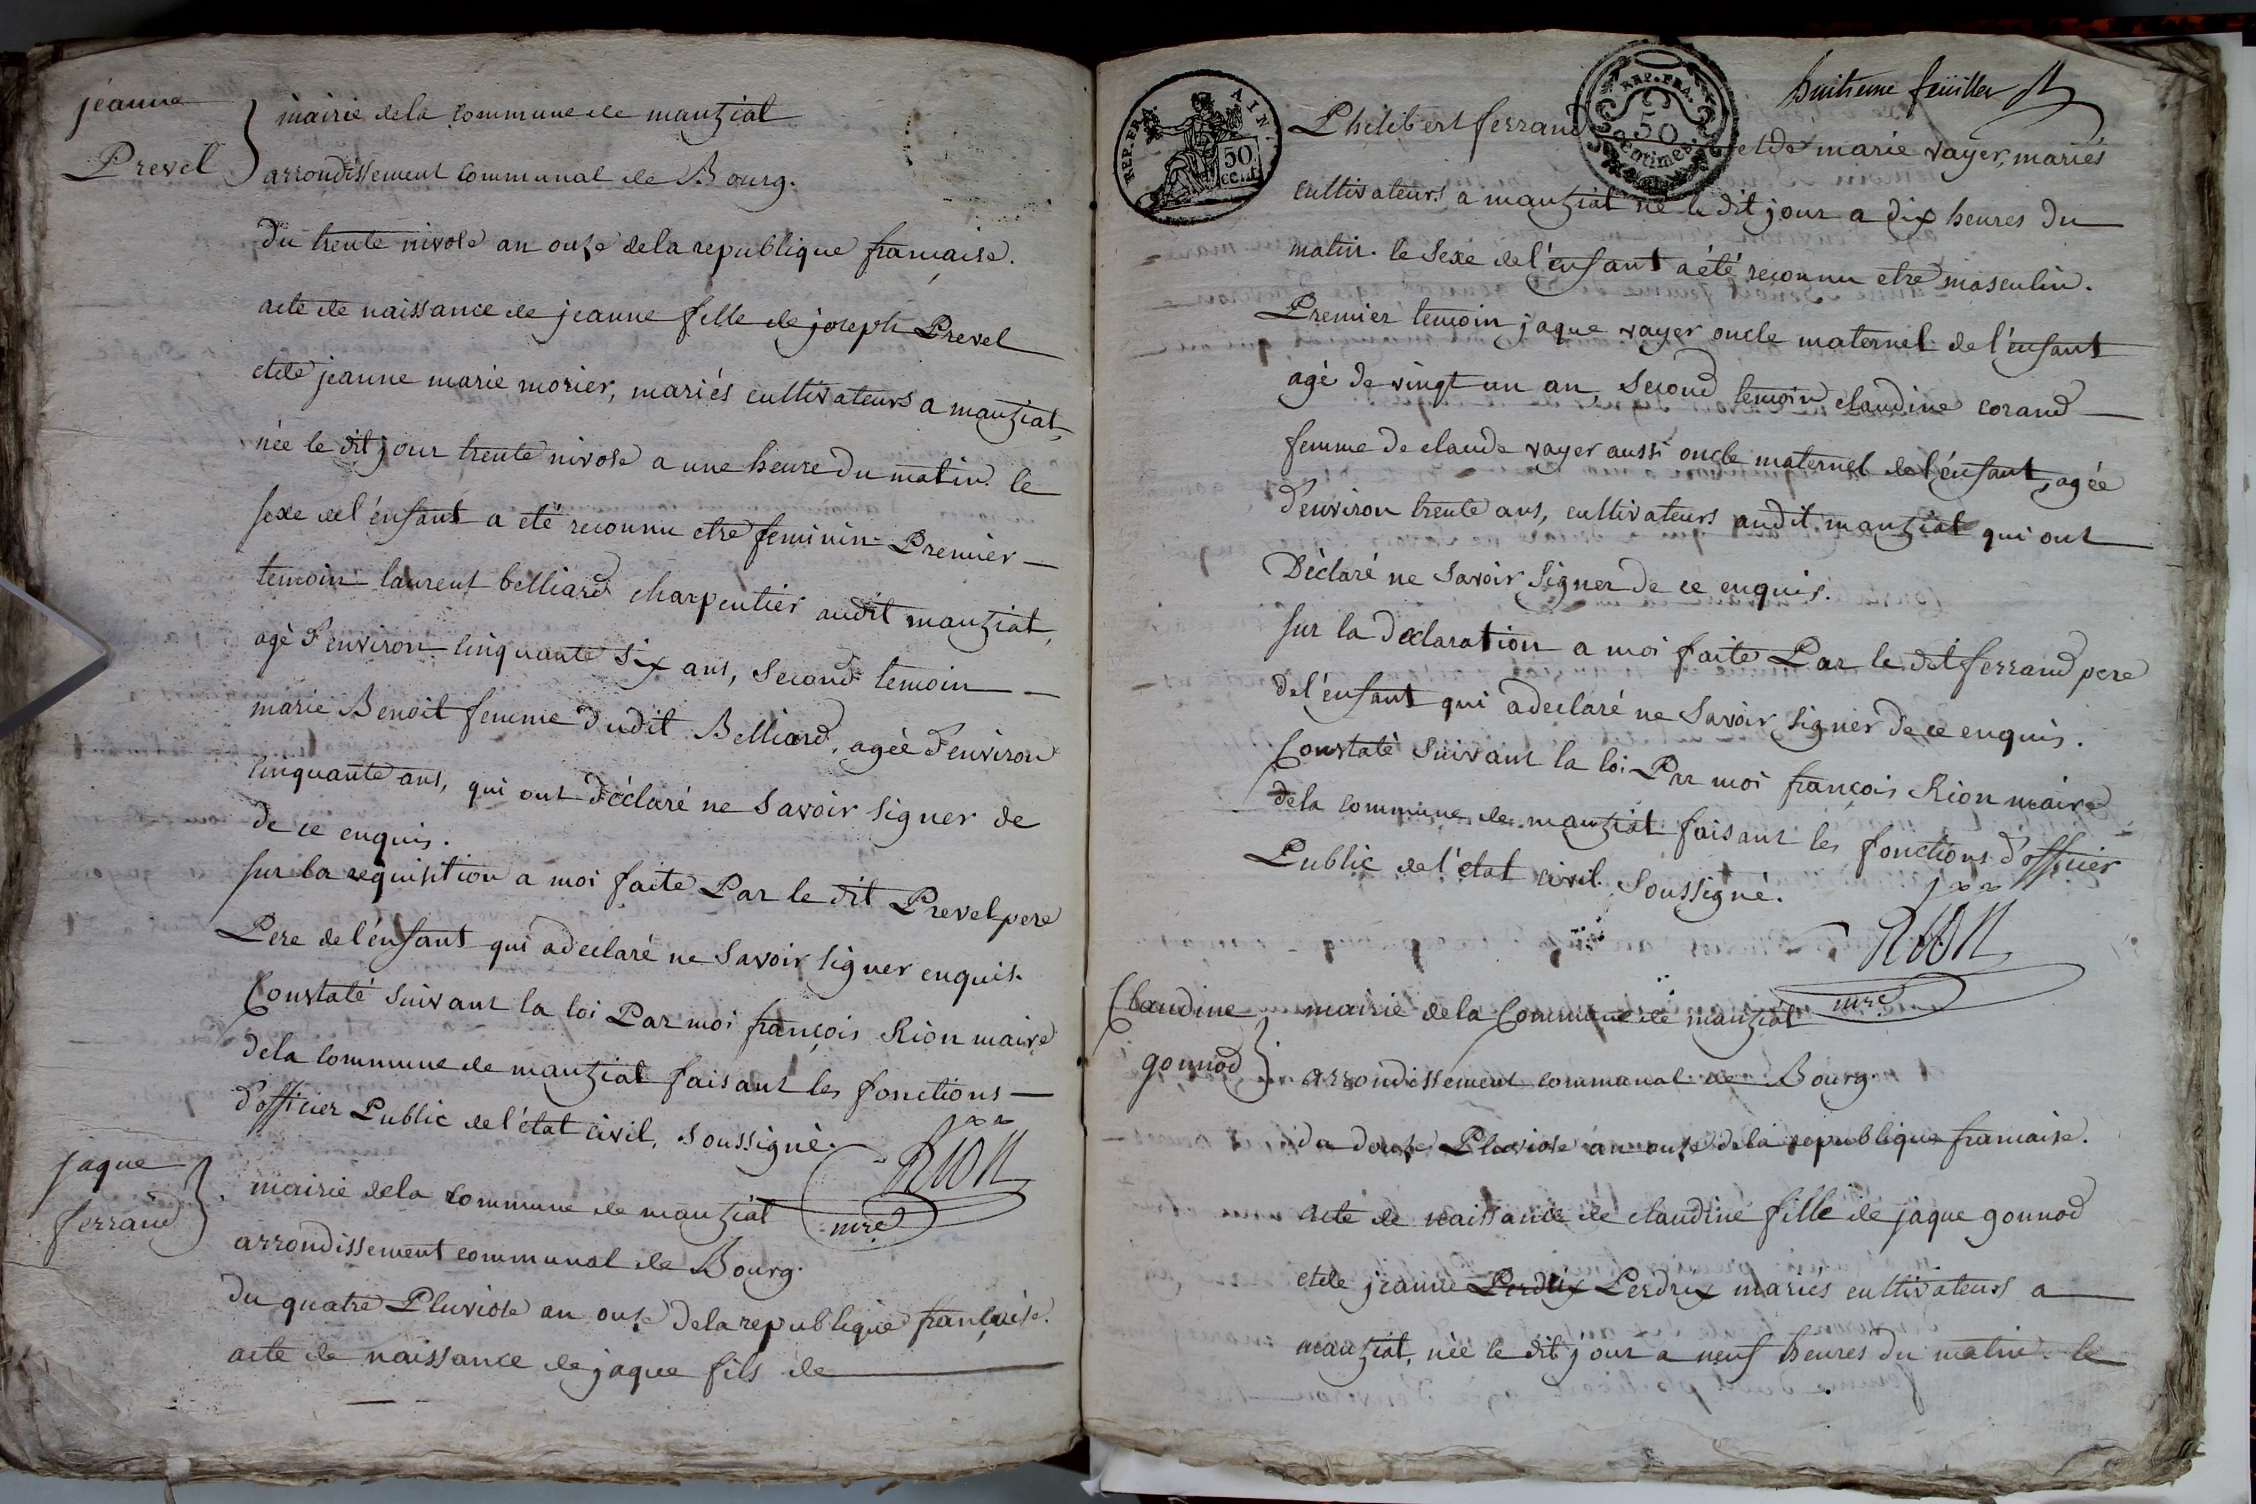 jeanne
Prevel
mairie dela commune de manziat
arrondissement communal de Bourg.
du trente nivose an onze dela republique francaise.
acte de naissance de jeanne fille de joseph Prevel
etde jeanne marie morier, mariés cultivateurs a manziat,
née le dit jour trente nivose a une heure du matin. le
sexe del'énfant a eté reconnu etre feminin. Premier
temoin laurent belliard charpentier audit manziat,
agé d'environ cinquante six ans, second temoin
marie Benoit femme dudit Belliard, agéé d'environ
cinquante ans, qui ont déclaré ne savoir signer de
de ce enquis.
sur la requisition a moi faite Par le dit Prevel pere
Pere del'énfant qui adeclaré ne savoir signer enquis.
Constaté suivant la loi Par moi françois Rion maire
dela commune de manziat faisant les fonctions
d'officier Public del'état civil, soussigné.
Rion
mre
jaque
ferrand
mairie dela commune de manziat
arrondissement communal de Bourg.
du quatre Pluviose an onze dela republique francaise.
acte de naissance de jaque fils de
REP. FRA.
AIN.
50
cent.
REP. FRA.
50
centimes.
huitieme feuillet
Philibert ferrand
etde marie vayer, mariés
cultivateurs a manziat né le dit jour a dix heures du
matin. le sexe del'énfant a été reconnu etre masculin.
Premier temoin jaque vayer oncle maternel de l'énfant
agé de vingt un an, second temoin claudine corand
femme de claude vayer aussi oncle maternel del'énfant, agée
d'environ trente ans, cultivateurs audit manziat qui ont
Déclaré ne savoir signer de ce enquis.
sur la declaration a moi faite Par le dit ferrand pere
del'énfant qui adeclaré ne savoir signer de ce enquis.
Constaté suivant la loi Par moi françois Rion maire
dela commune de manziat faisant les fonctions d'officier
Public de l'état civil soussigné.
Rion
mre
Claudine
gonnod
mairie dela Commune de manziat
arrondissement communal de Bourg.
du douze Pluviose an onze dela republique francaise.
acte de naissance de claudine fille de jaque gonnod
etde jeanne Perdrix Perdrix mariés cultivateurs a
manziat, née le dit jour a neuf heures du matin. le